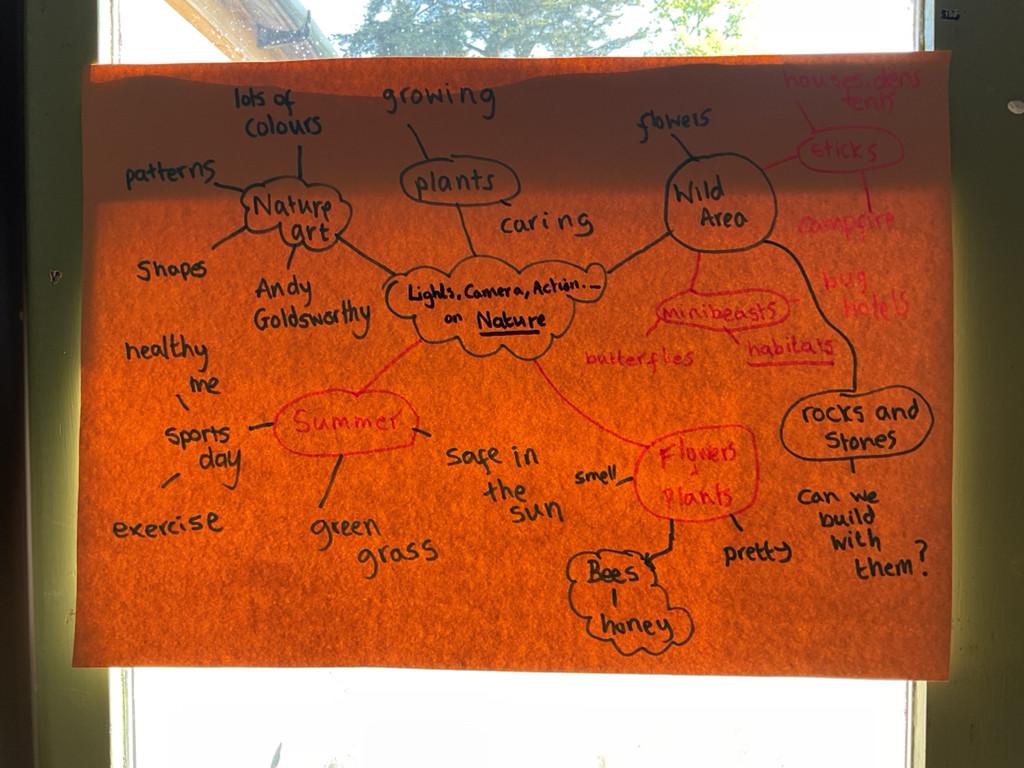 lots of
colours
growing
houses, dens
tents
flowers
sticks
patterns
plants
Nature
art
Wild
Area
caring
campfire
shapes
Andy
Goldsworthy
Lights, Camera, Action...
on Nature
minibeasts
bug
hotels
butterflies
habitats
healthy
me
sports
day
exercise
Summer
safe in
the
sun
green
grass
Flowers
plants
smell
pretty
Bees
honey
rocks and
stones
can we
build
with
them?